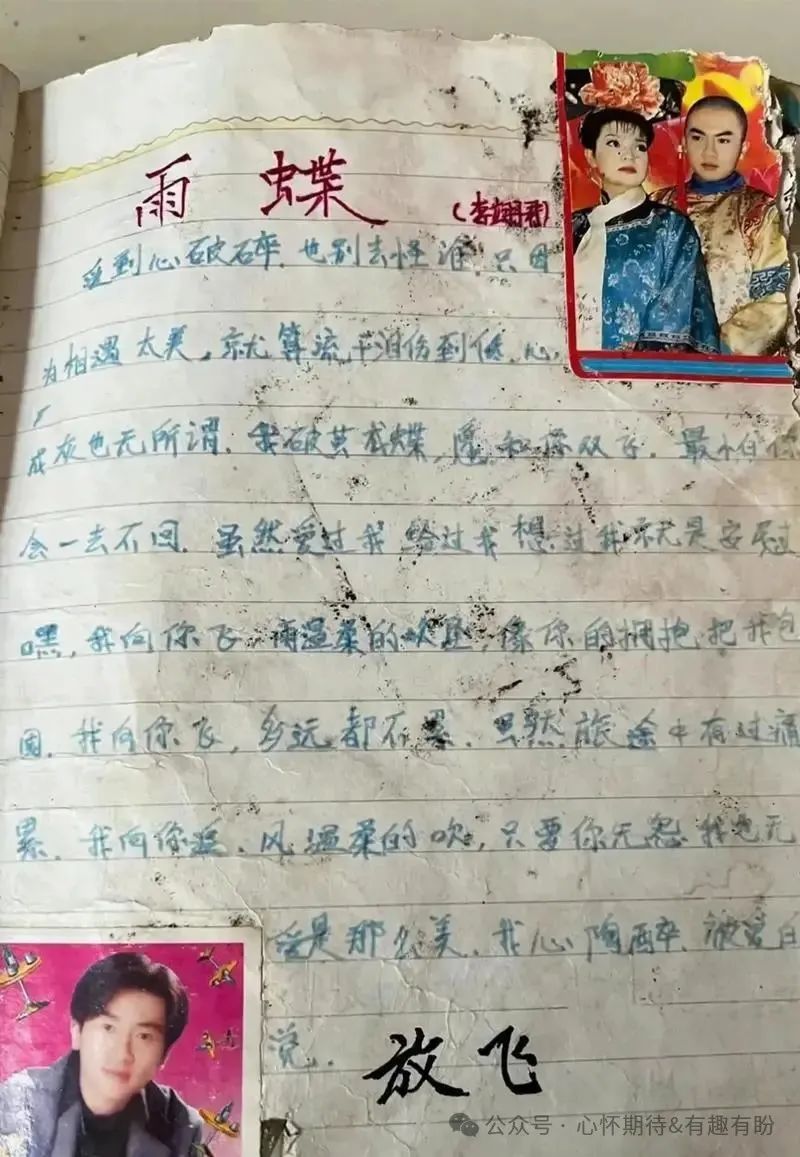 雨 蝶
(李翊君)
爱到心破碎.也别去怪谁.只因
为相遇太美,就算流干泪伤到底,心
成灰也无所谓.我破茧成蝶,愿和你双飞.最怕你
会一去不回.虽然爱过我给过我想过我就是安慰
嘿,我向你飞 雨温柔的吹坠,像你的拥抱把我包
围.我向你飞,多远都不累.虽然旅途中有过痛
累.我向你追.风温柔的吹,只要你无怨我也无
爱是那么美.我心陶醉.被爱的
觉.
放飞
公众号·心怀期待&有趣有盼